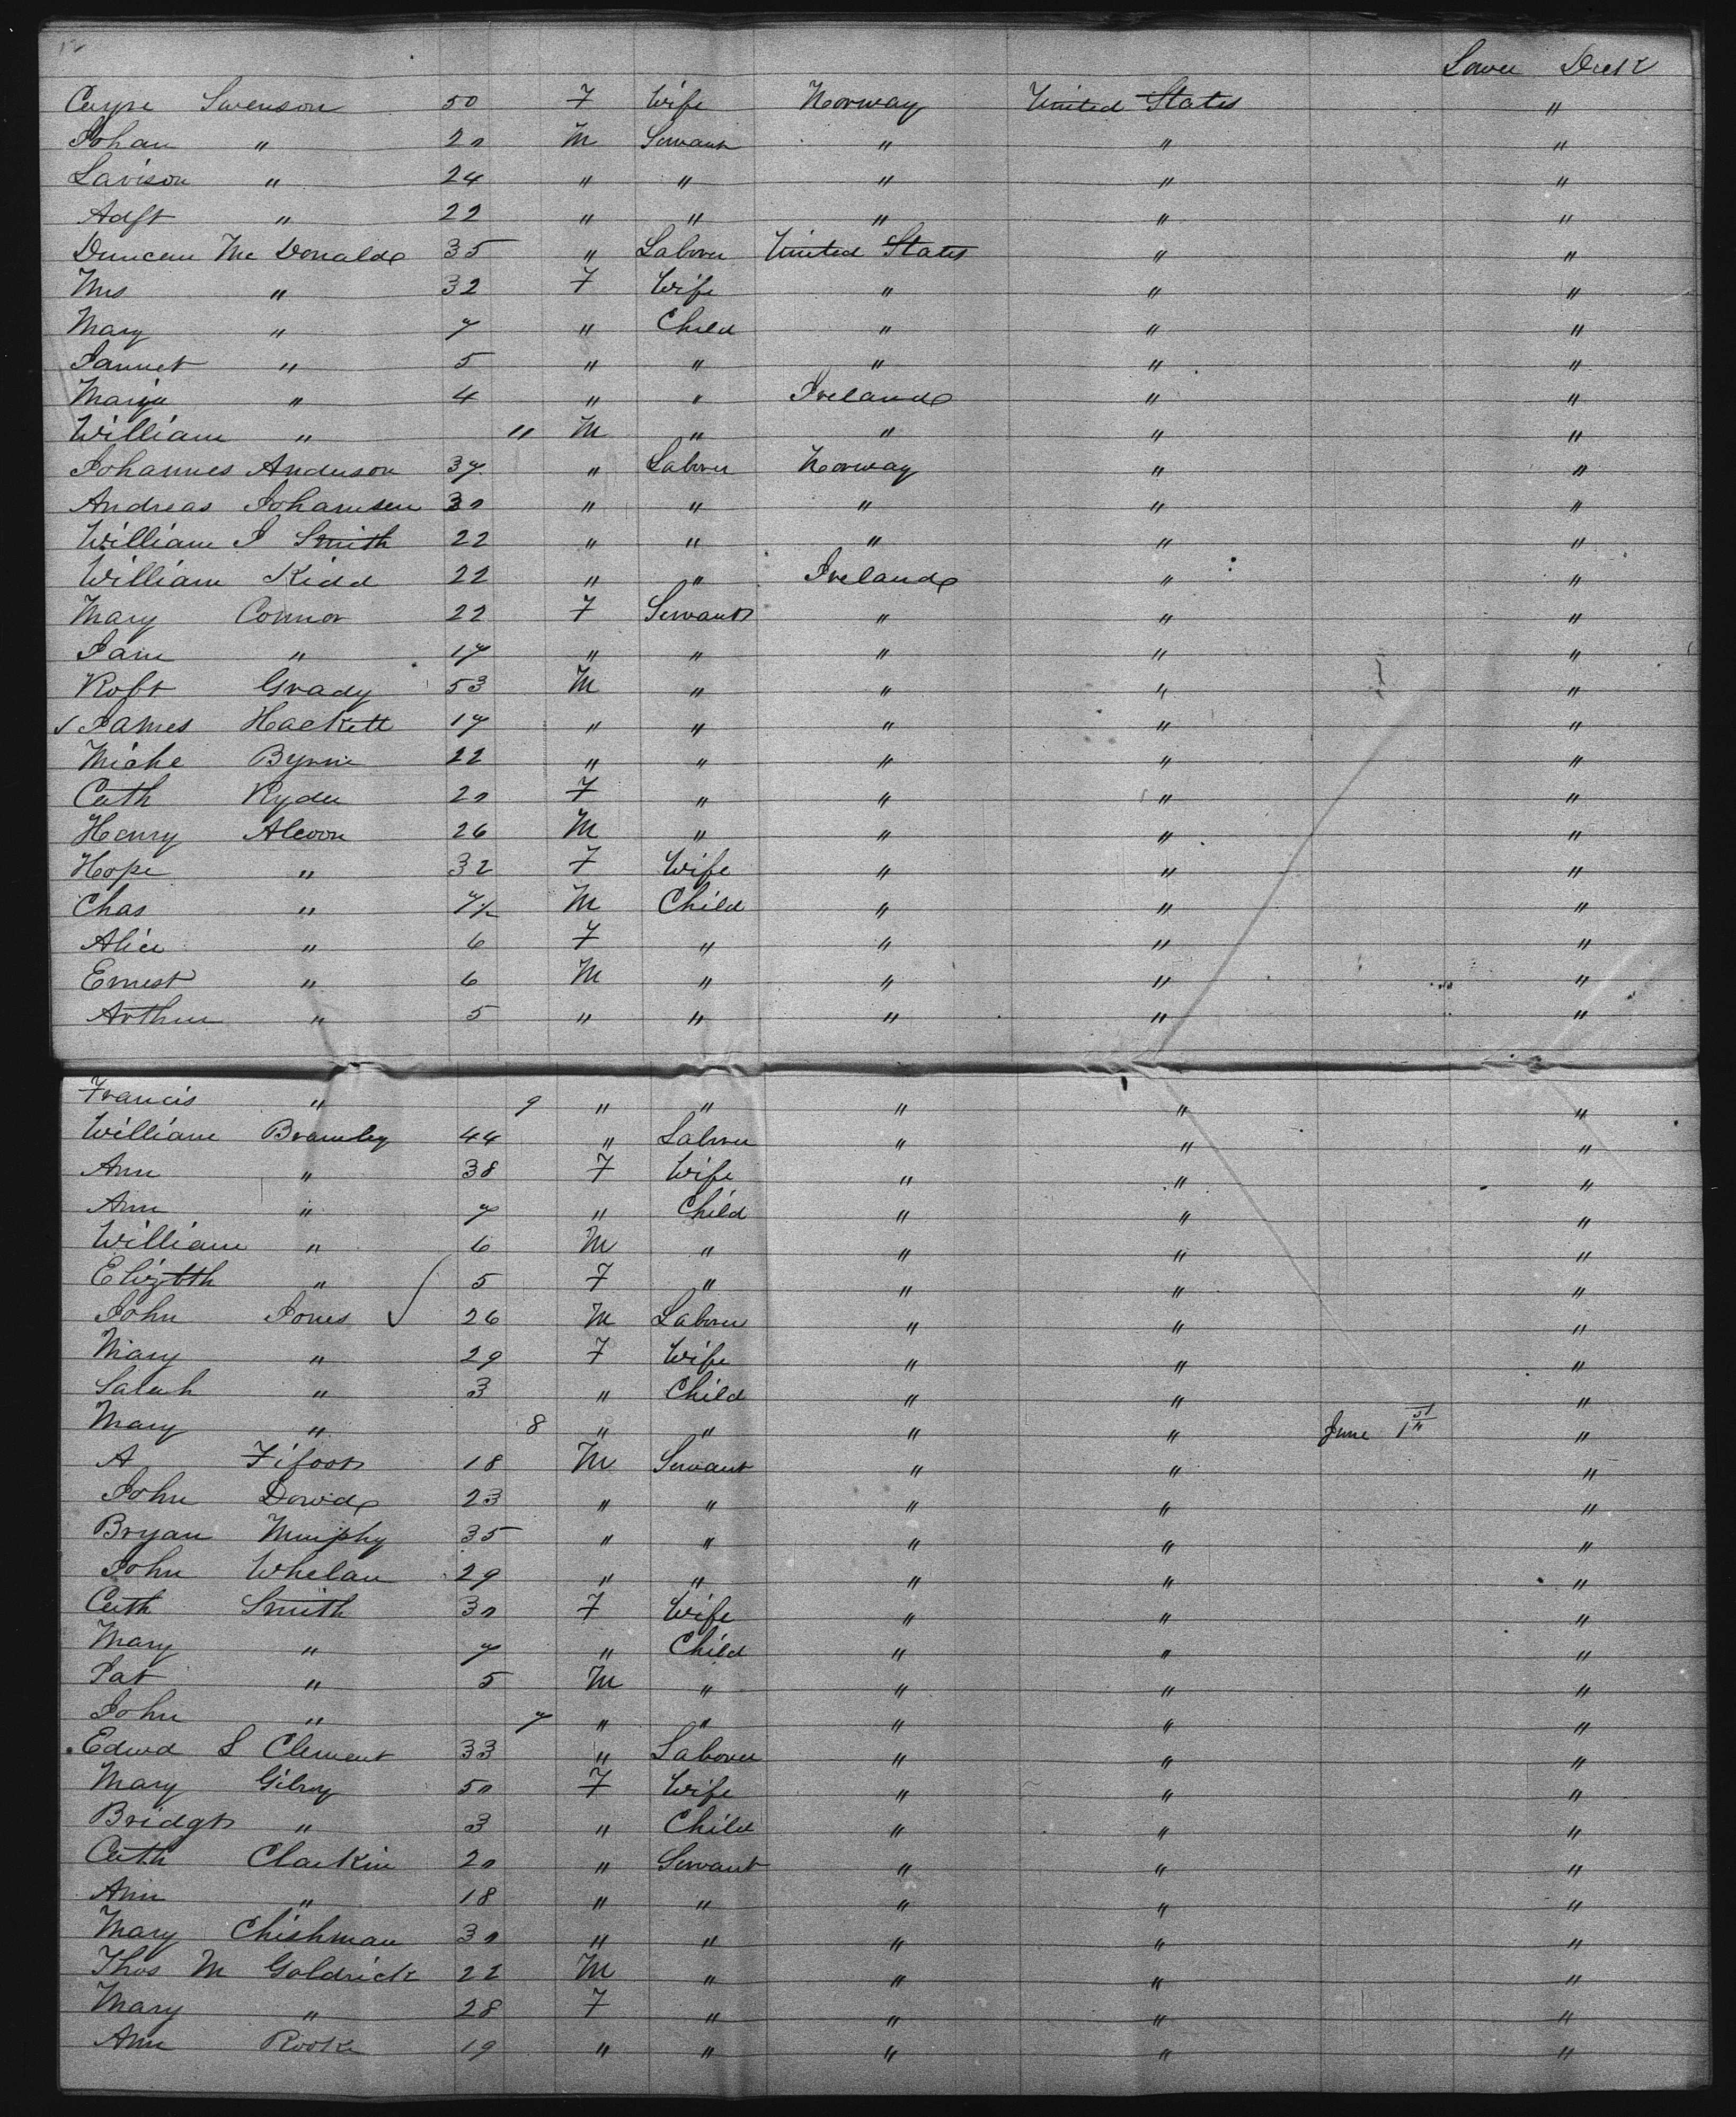 12
Lower Deck
Caype Swenson 50 F Wife Norway United States "
Johan " 20 M Servant " " "
Lavison " 24 " " " " "
Adft " 22 " " " " "
Duncan Mc Donald 35 " Laborer United States " "
Mrs " 32 F Wife " " "
Mary " 7 " Child " " "
Jannet " 5 " " " " "
Maria " 4 " " Ireland " "
William " " M " " " "
Johannes Anderson 37 " Laborer Norway " "
Andreas Johansen 30 " " " " "
William J Smith 22 " " " " "
William Kidd 22 " " Ireland " "
Mary Connor 22 F Servant " " "
Jane " 17 " " " " "
Robt Grady 53 M " " " "
James Hackett 17 " " " " "
Miche Byrne 22 " " " " "
Cath Ryder 20 F " " " "
Henry Alcorn 26 M " " " "
Hope " 32 F Wife " " "
Chas " 7½ M Child " " "
Alice " 6 F " " " "
Ernest " 6 M " " " "
Arthur " 5 " " " " "
Francis " 9 " " " " "
William Bramley 44 " Laborer " " "
Ann " 38 F Wife " " "
Ann " 7 " Child " " "
William " 6 M " " " "
Elizbth " 5 F " " " "
John Jones 26 M Laborer " " "
Mary " 29 F Wife " " "
Sarah " 3 " Child " " "
Mary " 8 " " " " June 1st "
A Fifoot 18 M Servant " " "
John Dowd 23 " " " " "
Bryan Murphy 35 " " " " "
John Whelan 29 " " " " "
Cath Smith 30 F Wife " " "
Mary " 7 " Child " " "
Pat " 5 M " " " "
John " 7 " " " " "
Edwd S Clement 33 " Laborer " " "
Mary Gilroy 50 F Wife " " "
Bridgt " 3 " Child " " "
Cath Clarkin 20 " Servant " " "
Ann " 18 " " " " "
Mary Chishman 30 " " " " "
Thos M Goldrick 22 M " " " "
Mary " 28 F " " " "
Ann Rooke 19 " " " " "